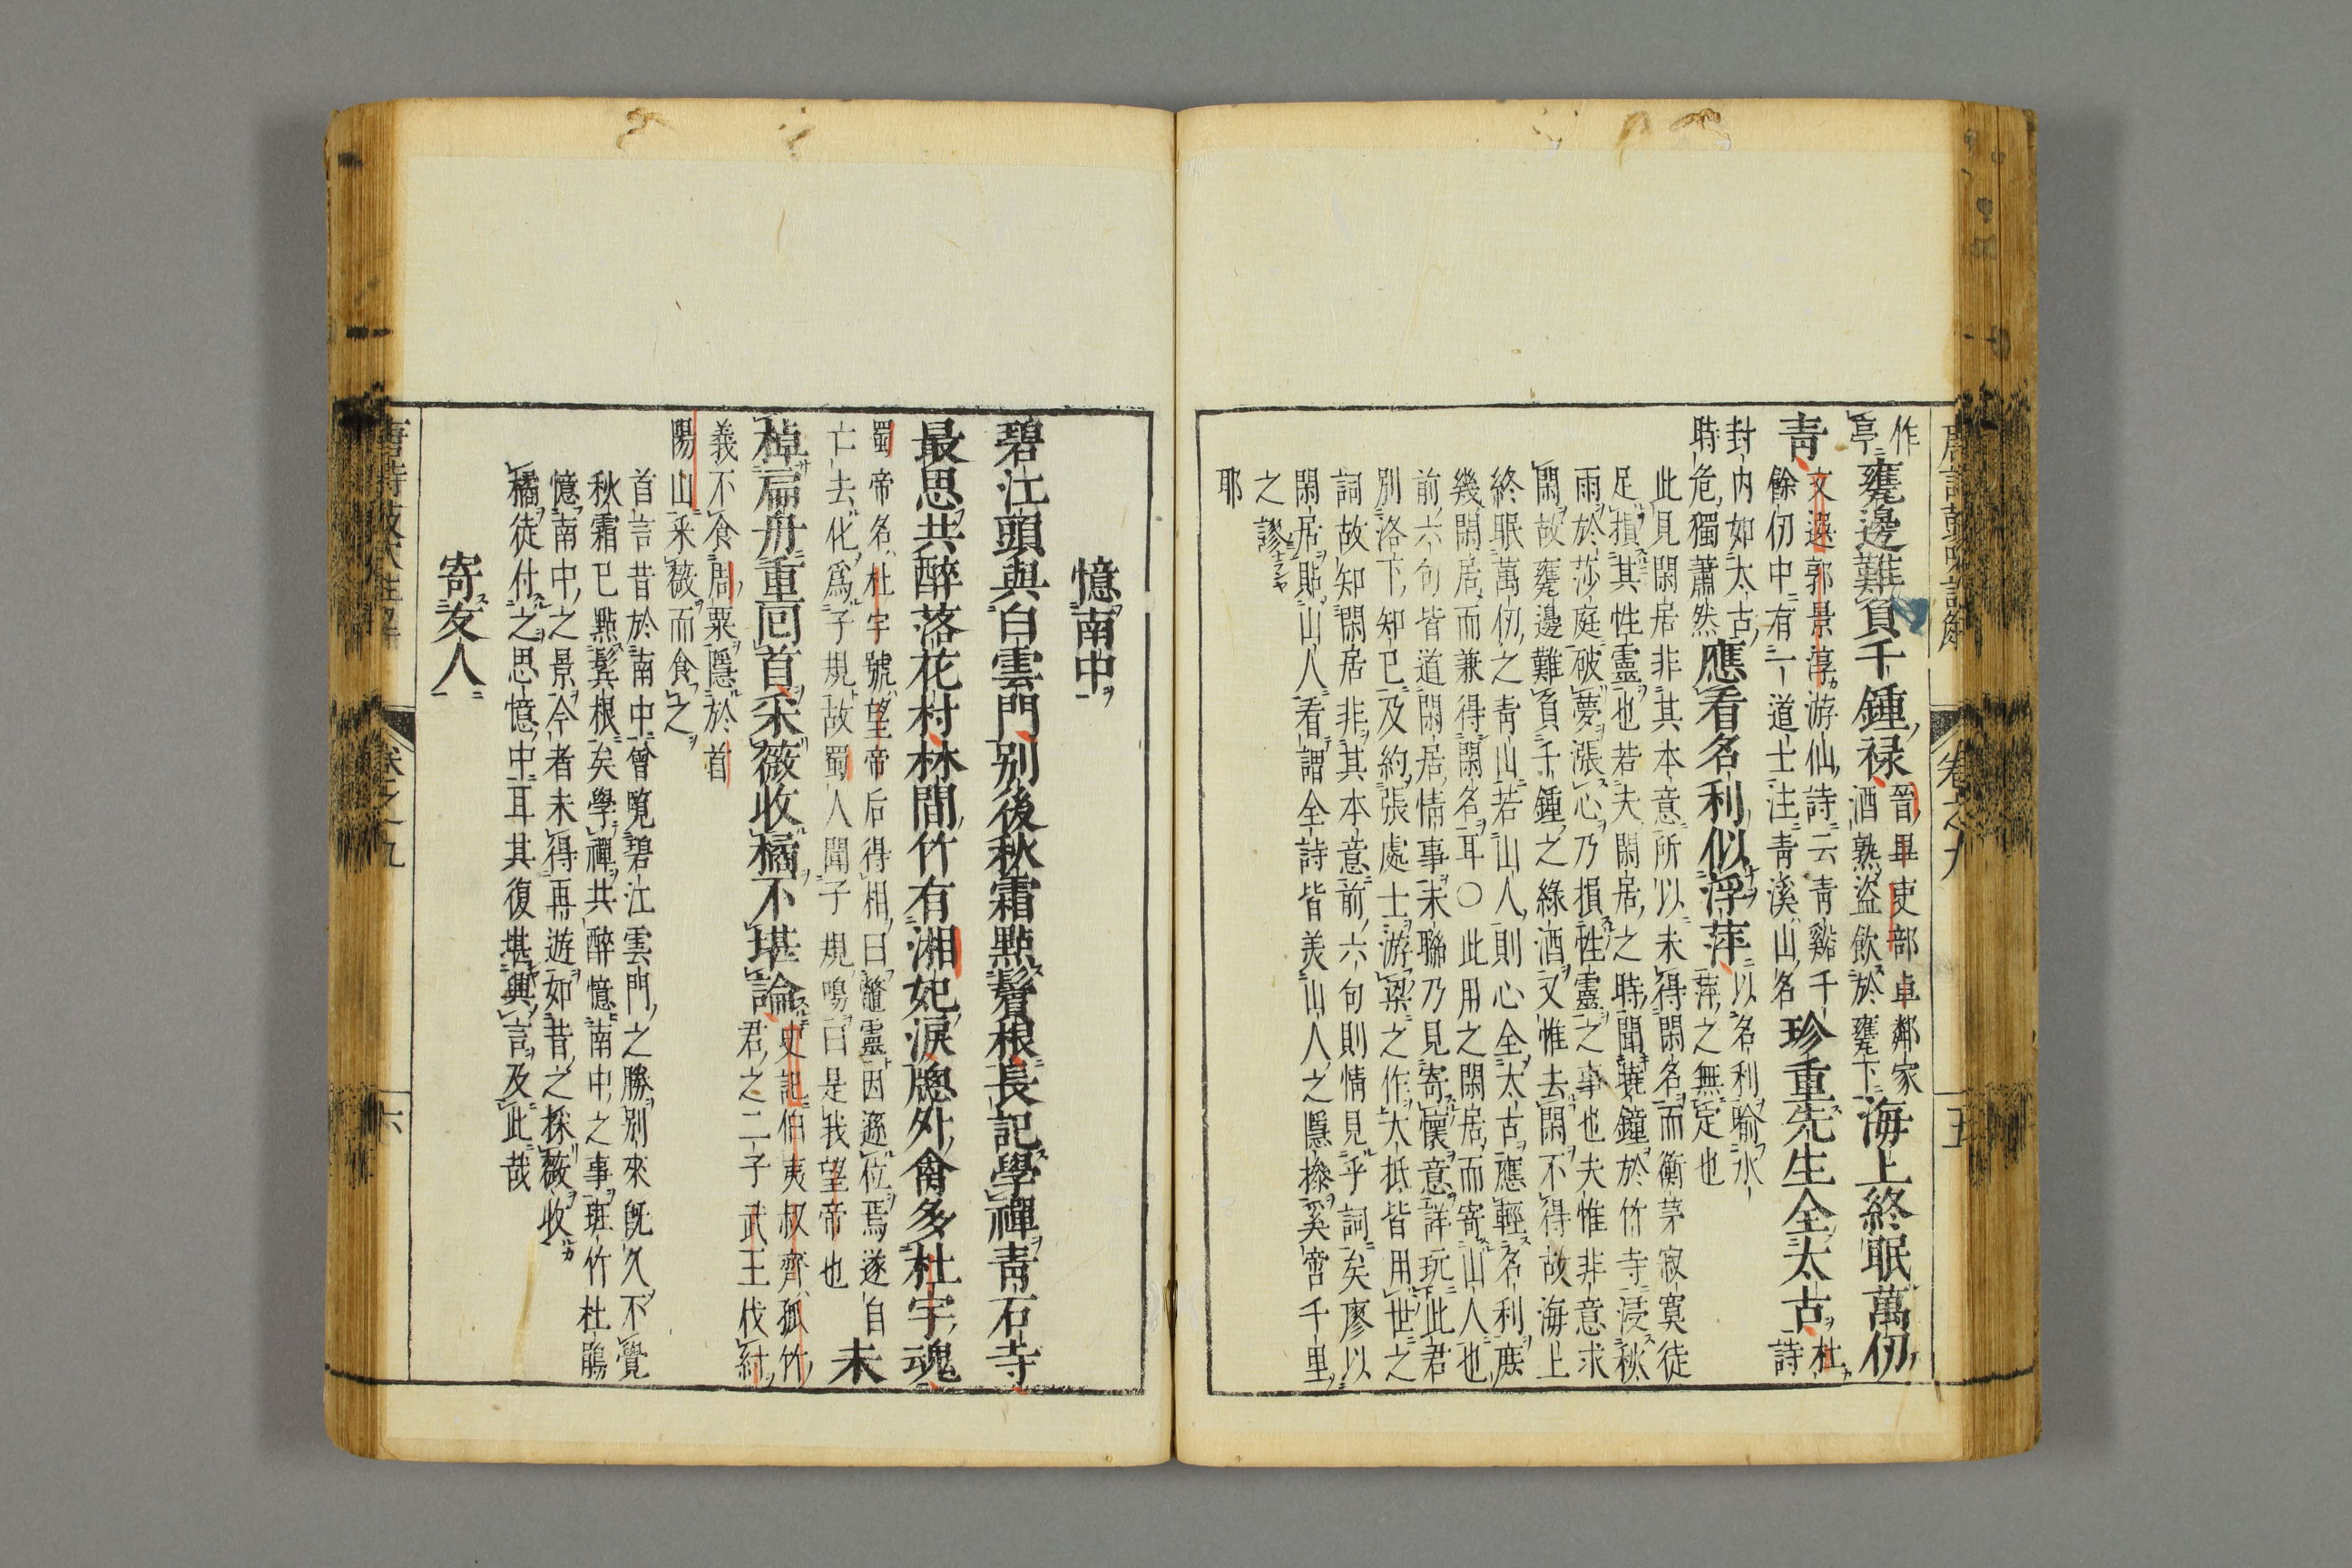 唐詩鼓吹註解
卷之九
五
作
亭
甕邊難負千鍾禄
晉畢吏部卓鄰家
酒熟盜飲於甕下
海上終眠萬仞
青
文選郭景淳游仙詩云青谿千
餘仞中有一道士注青溪山名
珍重先生全太古
杜
詩
封内如太古
時危獨蕭然
應看名利似浮萍
以名利喻水
萍之無定也
此見閑居非其本意所以未得閑名而衡茅寂寞徒
足損其性靈也若夫閑居之時聞曉鐘於竹寺浸秋
雨於莎庭破夢漲心乃損性靈之事也夫惟非意求
閑故甕邊難負千鍾之綠酒又惟去閑不得故海上
終眠萬仞之青山若山人則心全太古應輕名利庶
幾閑居而兼得閑名耳○此用之閑居而寄山人也
前六句皆道閑居情事未聯乃見寄懷意詳玩此君
別洛下知已及約張處士游梁之作大抵皆用世之
詞故知閑居非其本意前六句則情見乎詞矣廖以
閑居貼山人看謂全詩皆美山人之隱操奚啻千里
之謬
耶
憶南中
碧江頭與白雲門別後秋霜點鬢根長記學禪青石寺
最思共醉落花村林間竹有湘妃淚牕外禽多杜宇魂
蜀帝名杜宇號望帝后得相曰鼈靈因遜位焉遂自
亡去化爲子規故蜀人聞子規鳴曰是我望帝也
未
棹扁舟重回首采薇收橘不堪論
史記伯夷叔齊孤竹
君之二子武王伐紂
義不食周粟隱於首
陽山采薇而食之
首言昔於南中曾覧碧江雲門之勝別來旣久不覺
秋霜已點鬢根矣學禪共醉憶南中之事班竹杜鵑
憶南中之景今者未得再遊如昔之採薇收
橘徒付之思憶中耳其復堪興言及此哉
寄友人
唐詩鼓吹註解
卷之九
六